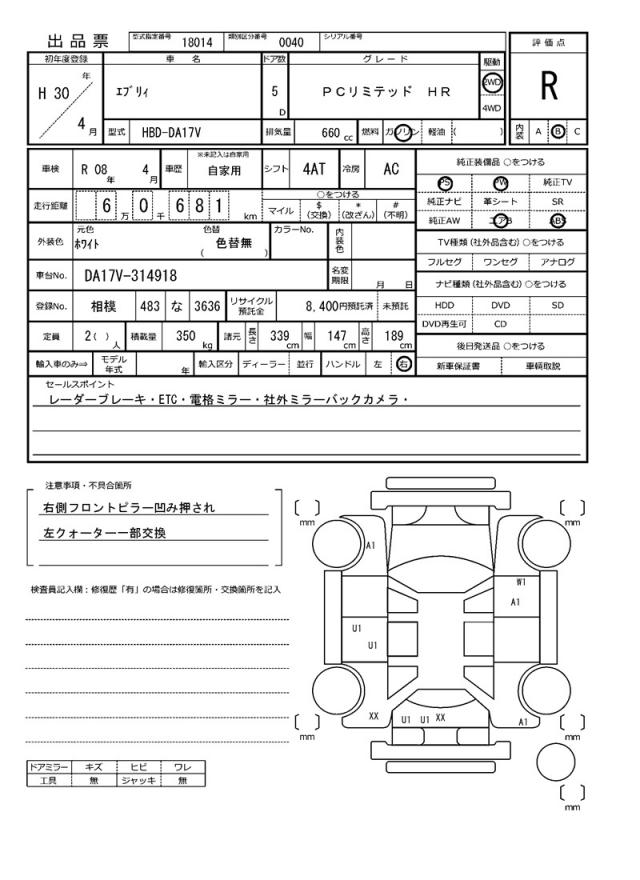 出品票 型式指定番号 18014 類別区分番号 0040 シリアル番号
初年度登録 車 名 ドア数 グレード 駆動 評価点
H 30 年 4 月 ｴﾌﾞﾘｨ 5 D PCリミテッド HR 2WD 4WD R
型式 HBD-DA17V 排気量 660 cc 燃料 ガソリン 軽油 ( ) 内装 A B C
車検 R 08 年 4 月 車歴 ※未記入は自家用 自家用 シフト 4AT 冷房 AC 純正装備品 ○をつける
PS PW 純正TV
走行距離 6 万 0 千 6 8 1 km ○をつける
マイル $ (交換) * (改ざん) # (不明)
純正ナビ 革シート SR
純正AW エアB ABS
外装色 元色 ﾎﾜｲﾄ 色替 ( 色替無 ) カラーNo. 内装色
TV種類 (社外品含む) ○をつける
フルセグ ワンセグ アナログ
車台No. DA17V-314918 名変期限 月 日
ナビ種類 (社外品含む) ○をつける
登録No. 相模 483 な 3636 リサイクル預託金 8,400円預託済 未預託
HDD DVD SD
DVD再生可 CD
定員 2( ) 人 積載量 350 kg 諸元 長さ 339 cm 幅 147 cm 高さ 189 cm
後日発送品 ○をつける
輸入車のみ⇒ モデル年式 年 輸入区分 ディーラー 並行 ハンドル 左 右
新車保証書 車輌取説
セールスポイント
レーダーブレーキ・ETC・電格ミラー・社外ミラーバックカメラ・
注意事項・不具合箇所
右側フロントピラー凹み押され
左クォーター一部交換
検査員記入欄：修復歴「有」の場合は修復箇所・交換箇所を記入
ドアミラー キズ ヒビ ワレ
工具 無 ジャッキ 無
mm mm
A1
W1
A1
U1
U1
XX U1 U1 XX A1
mm mm
mm